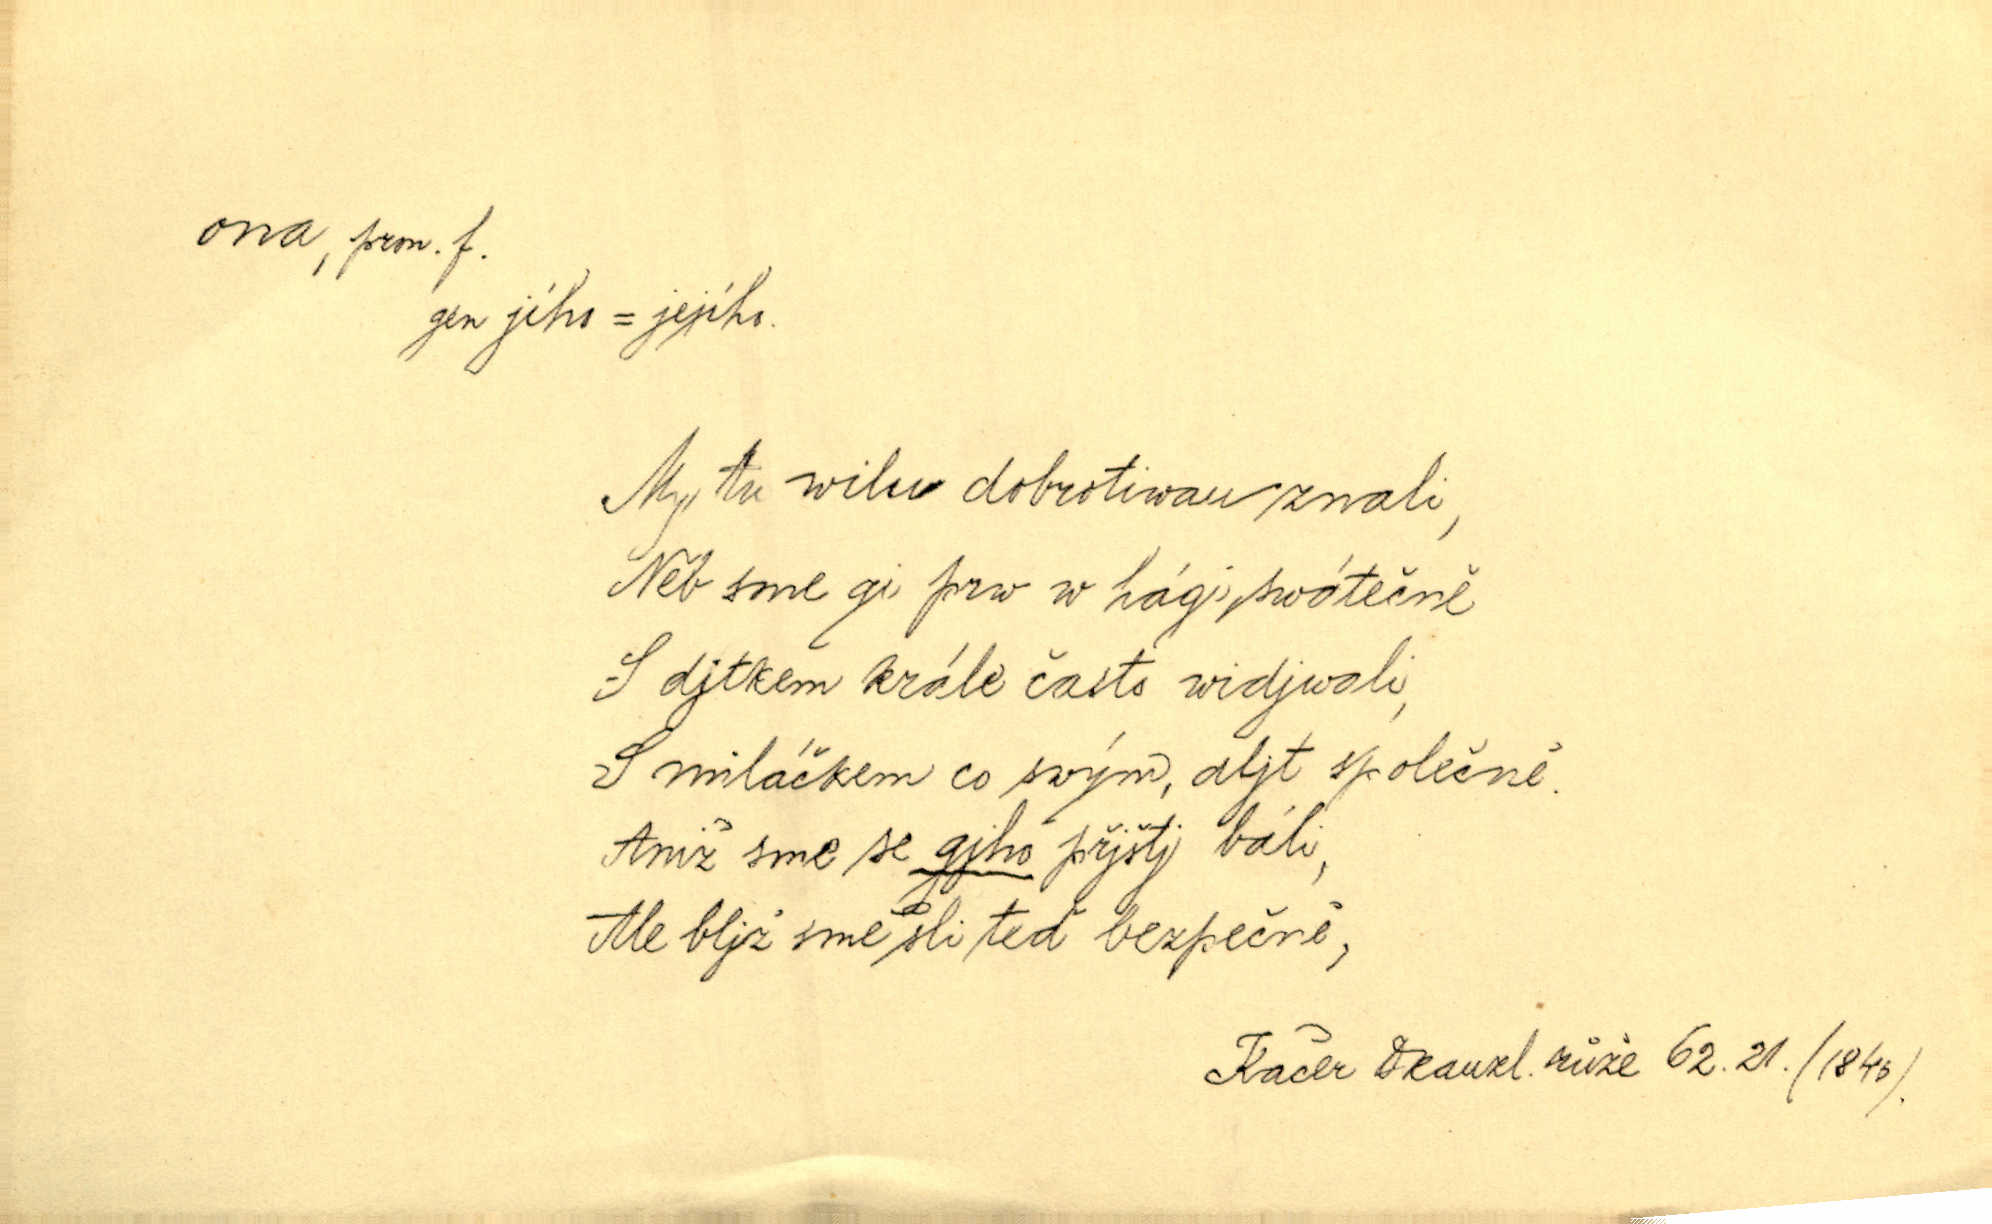 ona, pron. f.
gen jího = jejího.
My tu wilu dobrotiwau znali,
Neb sme gi prw w hági swátečně
S djtkem krále často widjwali,
S miláčkem co swým, dljt společně.
Aniž sme se gjho přjštj báli,
Ale bljž sme šli teď bezpečně,
Kačer Okauzl. růže 62. 21. (1840).